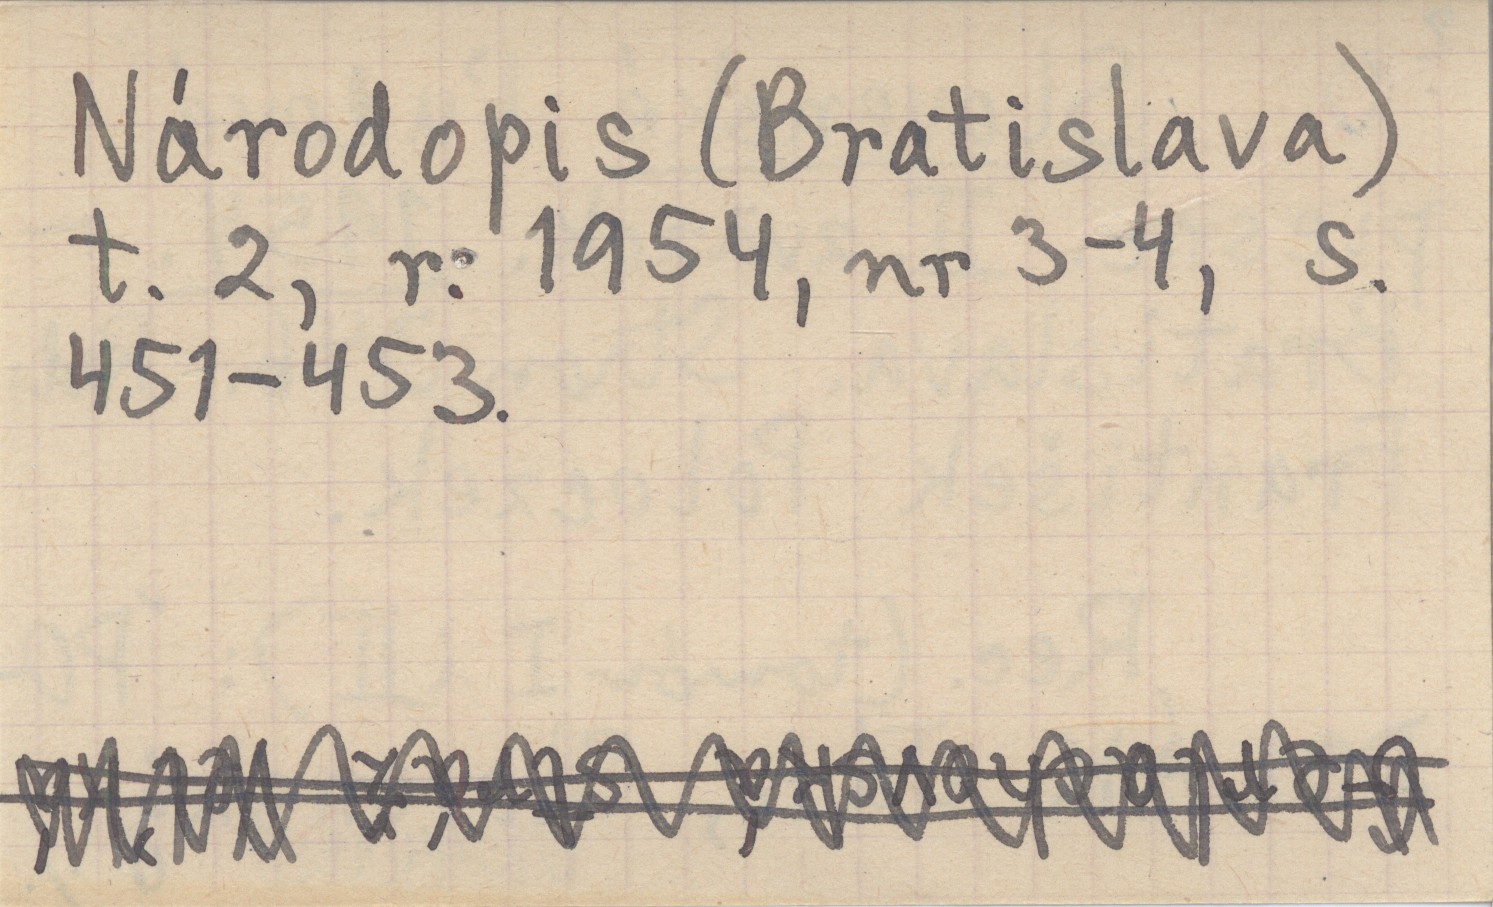 Národopis (Bratislava)
t. 2, r: 1954, nr 3-4, s.
451-453.